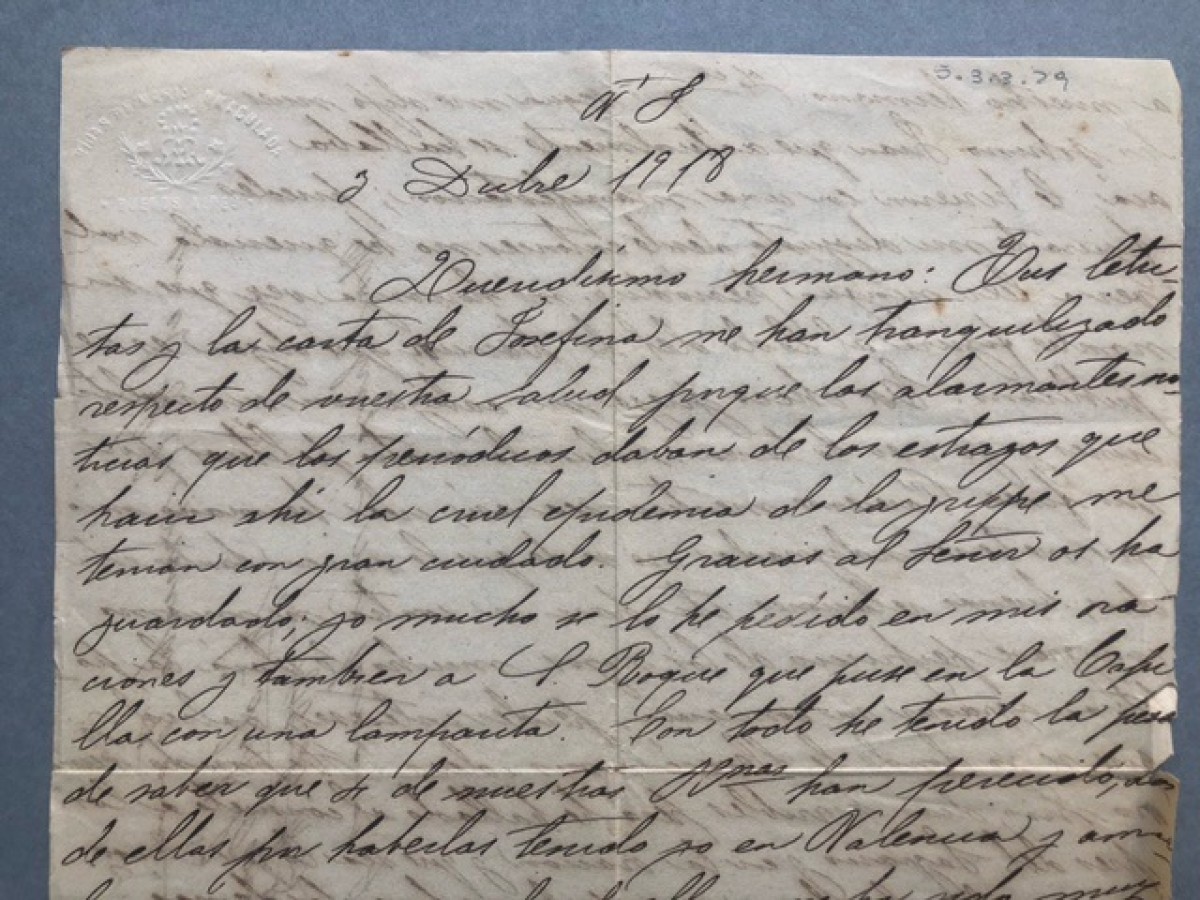 5.3.3.29
3 Dicbre 1918
Queridisimo hermano: Tus letri-
tas y la carta de Josefina me han tranquilizado
respecto de vuestra salud porque las alarmantes no-
ticias que los periódicos daban de los estragos que
hacia ahi la cruel epidemia de la grippe me
tenian con gran cuidado. Gracias al Señor os ha
guardado; yo mucho se lo he pedido en mis ora-
ciones y tambien a S. Roque que puse en la Capi-
lla con una lamparita. Con todo he tenido la pena
de saber que de nuestras han perecido, dos
de ellas por haberlas tenido yo en Valencia y